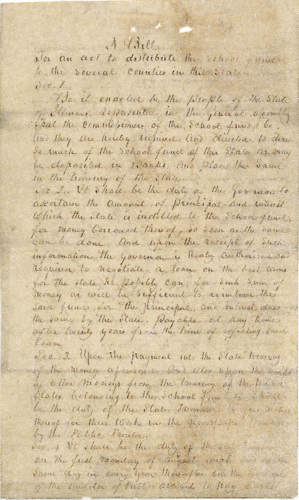 A Bill
For an act to distribute the School funds
to the several counties in this State
Sec. 1
Be it enacted by the People of the State
of Illinois represented in the general assembly
that the Commissioners of the School fund, be
and they are hereby required and directed to draw
so much of the School fund of this State as may
be deposited in Banks, and place the same
in the treasury of the State
Sec 2. It shall be the duty of the Governor to
ascertain the amount of Principal and interest
which the State is indebted to the School fund,
for money borrowed therof, so soon as the same
can be done. And upon the receipt of such
information the Governor is hereby authorised and
required to negotiate a loan on the best terms
for the State he possibly can, for such sum of
money as will be sufficient to reimburse the
said fund for the principal, and interest due
the same by the State, payable at any time
after twenty years from the time of
loan
Sec. 3 Upon the payment into the State treasury
of the money aforesaid, and also upon the
of other moneys from the treasury of the United
States belonging to the School fund it shall
be the duty of the State Treasurer to give notice
therof for three weeks in the newspaper
by the Public Printer
Sec. 4 It shall be the duty of the
on the first monday of August next
same day in every year thereafter
of the auditor of Public accounts to